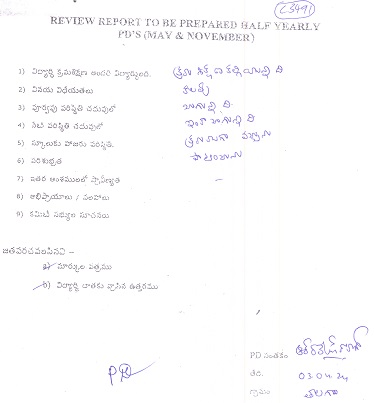 C5491
REVIEW REPORT TO BE PREPARED HALF YEARLY
PD'S (MAY & NOVEMBER)
1) విద్యార్థి క్రమశిక్షణ అందరి విద్యార్థులది. క్రమశిక్షణ కల్గియున్నది
2) వినయ విధేయతలు కలవు
3) పూర్వపు పరిస్థితి చదువులో బాగున్నది.
4) నేటి పరిస్థితి చదువులో ఇంకా బాగున్నది
5) స్కూలుకు హాజరు పరిస్థితి. క్రమముగా
6) పరిశుభ్రత పాటించును
7) ఇతర అంశములలో ప్రావీణ్యత
8) అభిప్రాయాలు / సలహాలు
9) కమిటి సభ్యుల సూచనలు
జతపరచవలసినవి –
a) మార్కుల పత్రము
b) విద్యార్థి దాతకు వ్రాసిన ఉత్తరము
PD సంతకం
తేది. 03.04.24
గ్రామం